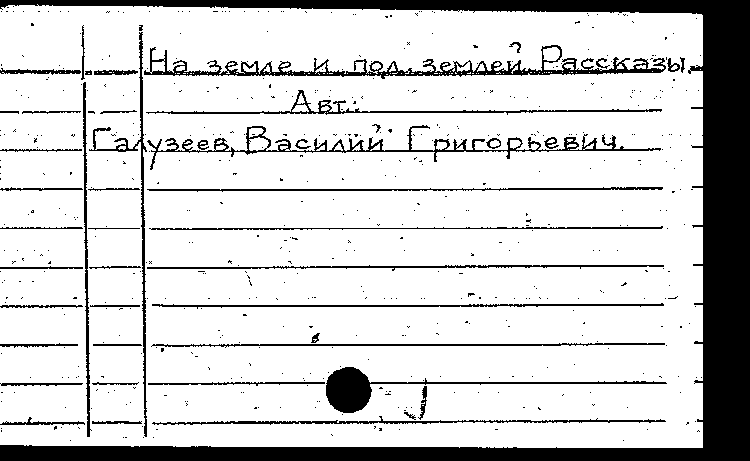 На земле и под землей. Рассказы.
Авт.:
Галузеев, Василий Григорьевич.